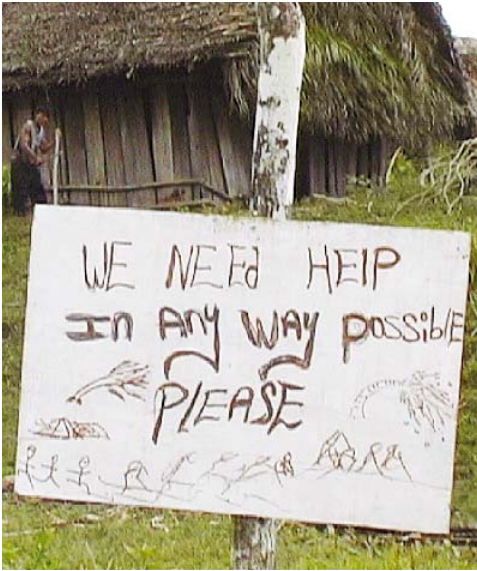 WE NEEd HElP
In Any WAy pOssiblE
PlEASE